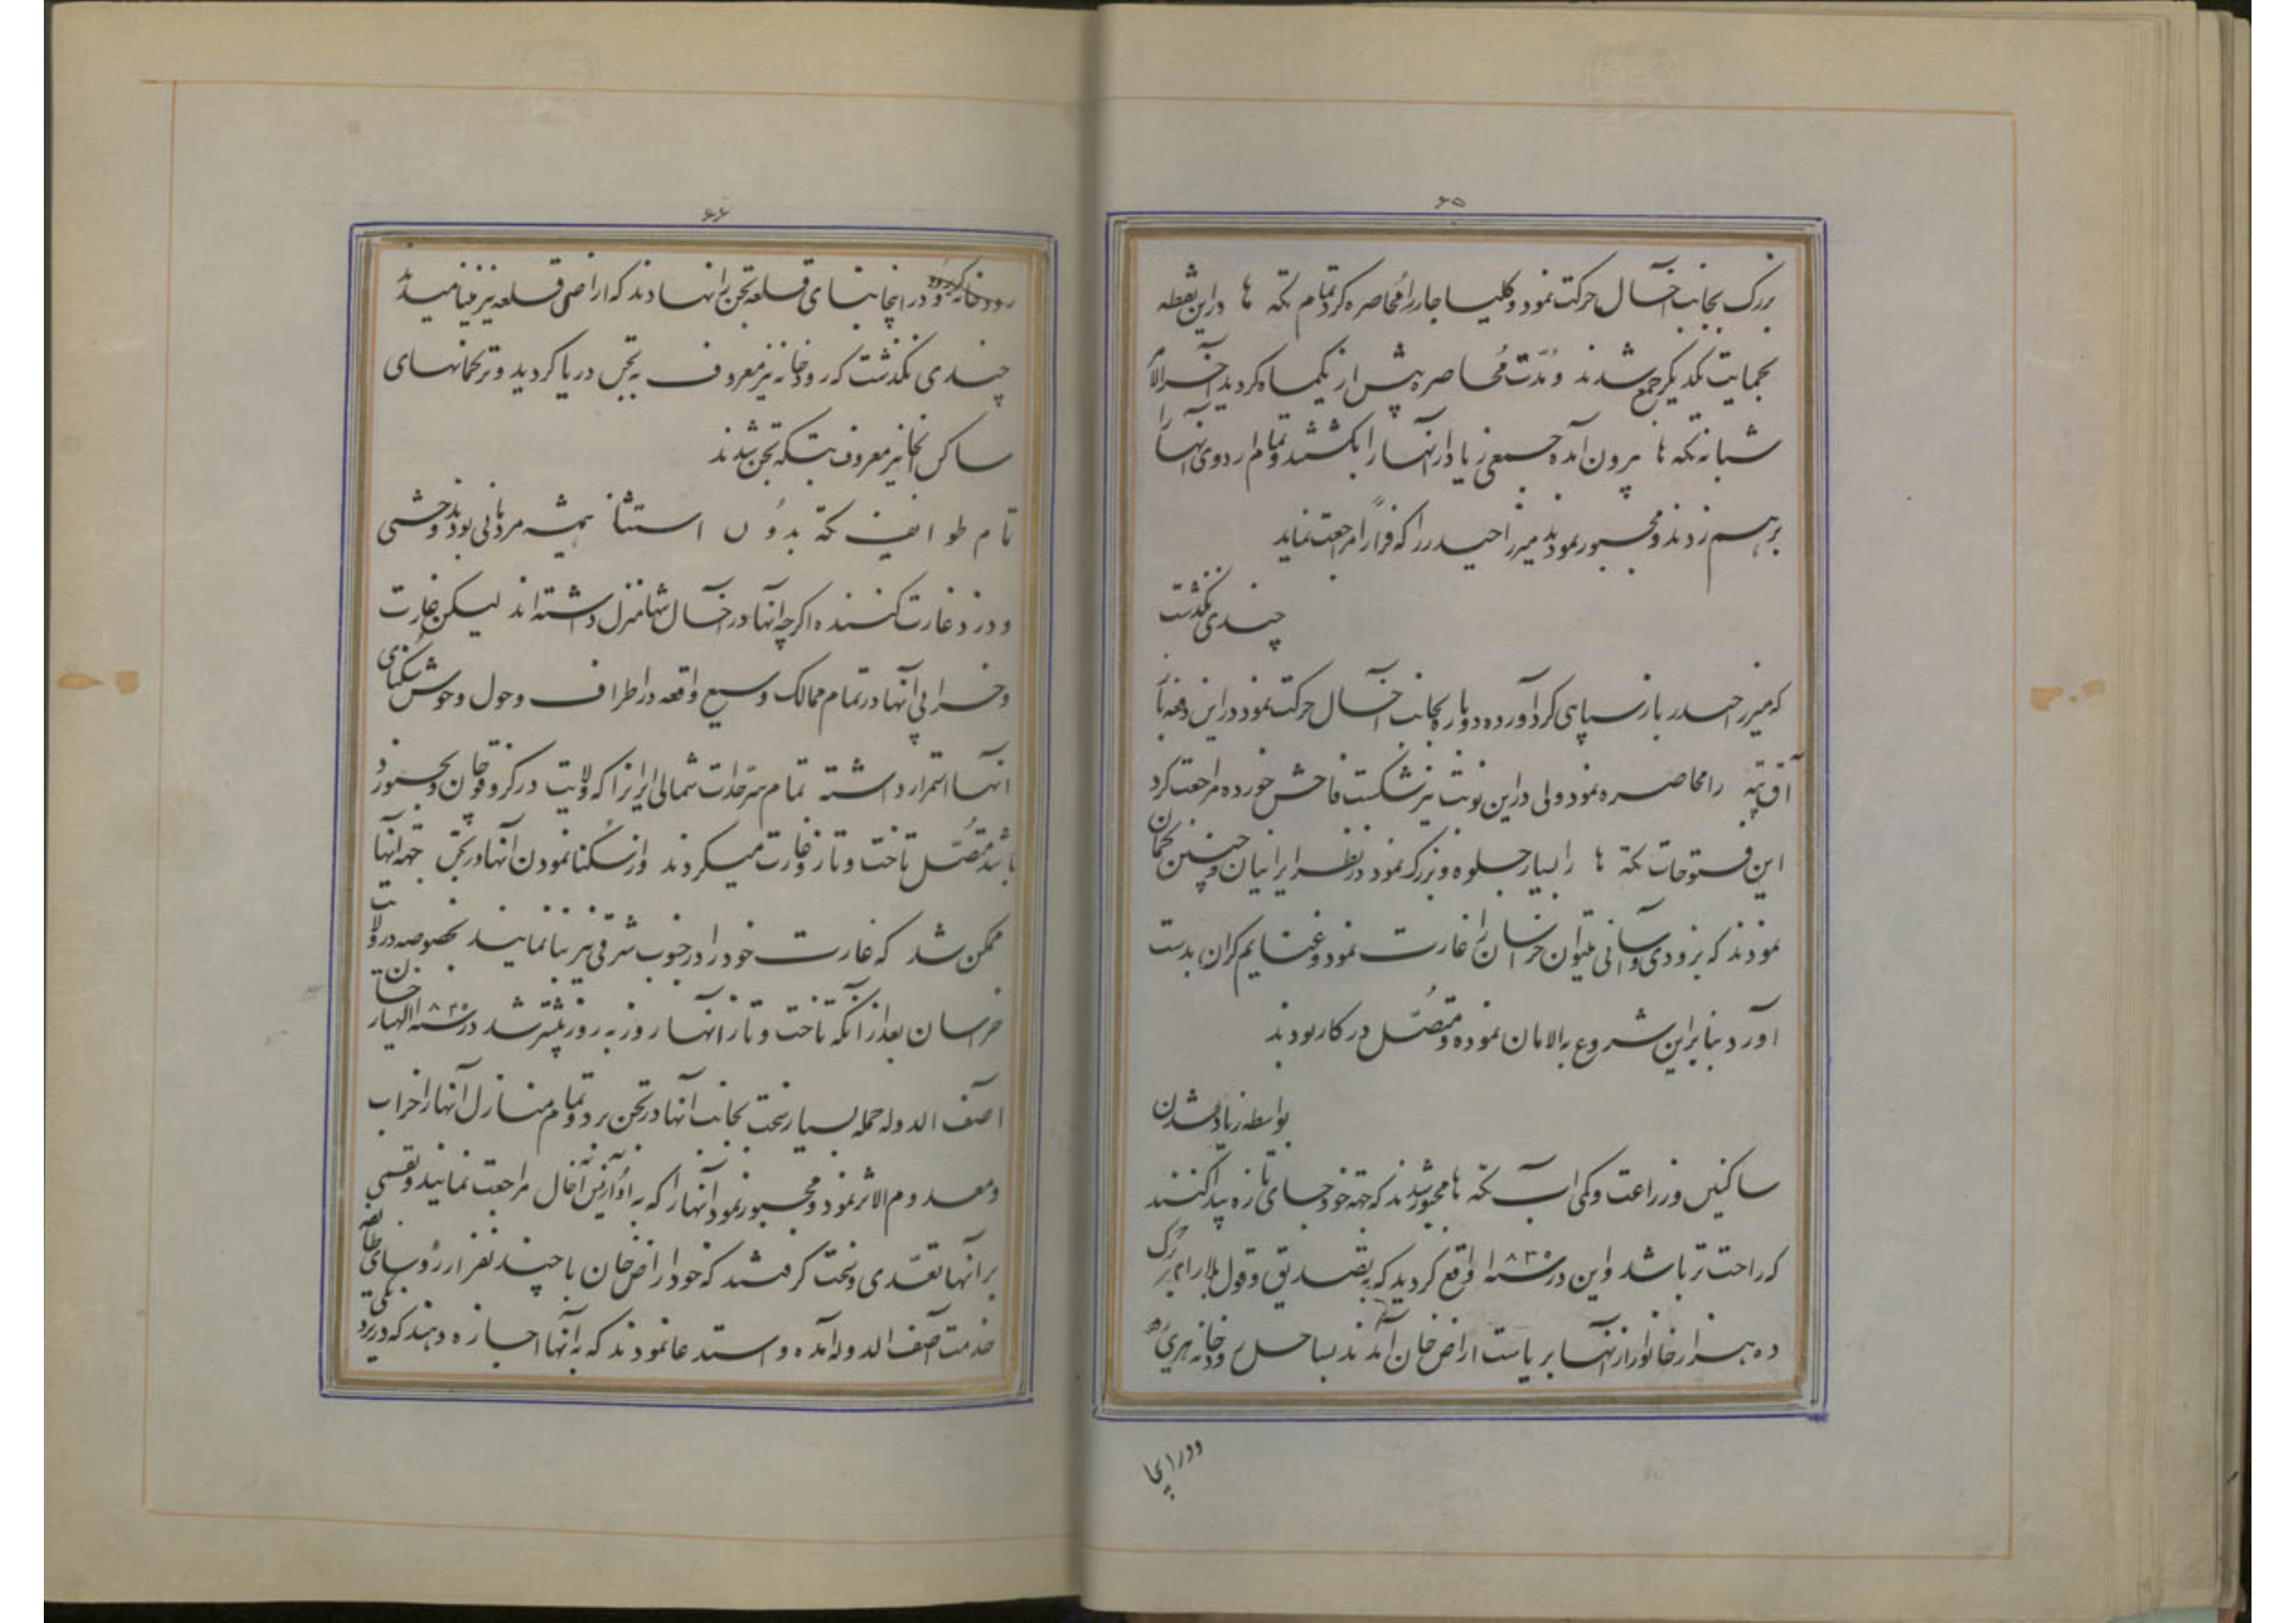 ۶۵
بزرک بجانب آخال حرکت نمود و کلیسا جار را محاصره کرد تمام تکه ها در این نقطه
بحمایت یکدیکر جمع شدند و مُدّت مُحاصره پیش از یکماه کردید آخرالامر
شبانه تکه ها بیرون آمده جمعی زیاد از آنها را بکشتند و تمام اردوی آنها را
برهم زدند و مجبور نمودند میرزا حیدر را که فراراً مراجعت نماید
چندی نکذشت
که میرزا حیدر باز سپاهی کرد آورده دوباره بجانب آخال حرکت نمود در این دفعه با
آق تپه را محاصره نمود ولی در این نوبت نیز شکست فاحش خورده مراجعت کرد
این فتوحات تکه ها را بسیار جلوه و بزرک نمود در نظر ایرانیان و چنین کمان
نمودند که بزودی و آسانی میتوان خراسان را غارت نمود و غنایم کران بدست
آورد بنابراین شروع به الامان نموده و متصّل در کار بودند
بواسطه زیاد شدن
ساکنین و زراعت و کمی آب تکه ها مجبور شدند که جهة خود جای تازه پیدا کنند
که راحت تر باشد و این در سنه ۱۸۳۰ واقع کردید که به تصدیق و قول بلارامبرک
ده هزار خانوار از آنها بریاست اراض خان آمدند بساحل رودخانه هریرود
و در اینجا
۶۶
و در اینجا بنای قلعه تجن را نهادند که اراضی قلعه نیز مینامیدند
چندی نکذشت که رودخانه نیز معروف به تجن دریا کردید و ترکمانهای
ساکن آنجا نیز معروف بتکه تجن شدند
تمام طوایف تکه بدوُن استثنا همیشه مردمانی بودند وحشی
و دزد و غارت کننده اکرچه آنها در آخال تنها منزل داشته اند لیکن غارت
و خرابی آنها در تمام ممالک وسیع واقعه در اطراف و حول و حوش سُکنای
آنها استمرار داشته تمام سرحدّات شمالی ایران را که ولایت درکز و قوچان و بجنورد
باشد متصّل تاخت و تاز و غارت میکردند و از سُکنا نمودن آنها در تجن جهة آنها
ممکن شد که غارت خود را در جنوب شرقی نیز بنا نمایند بخصوصه در ولایت
خراسان بعد از آنکه تاخت و تاز آنها روز به روز بیشتر شد در سنه ۱۸۳۰ الهیار خان
آصف الدوله حمله بسیار سخت بجانب آنها در تجن برد و تمام منازل آنها را خراب
و معدوم الاثر نمود و مجبور نمود آنها را که به آخال مراجعت نمایند و بقسمی
بر آنها تعدّی و سخت کرفتند که خود اراض خان با چند نفر از رؤسای طایفه
خدمت آصف الدوله آمده و استدعا نمودند که به آنها اجازه دهند که در نزدیکی